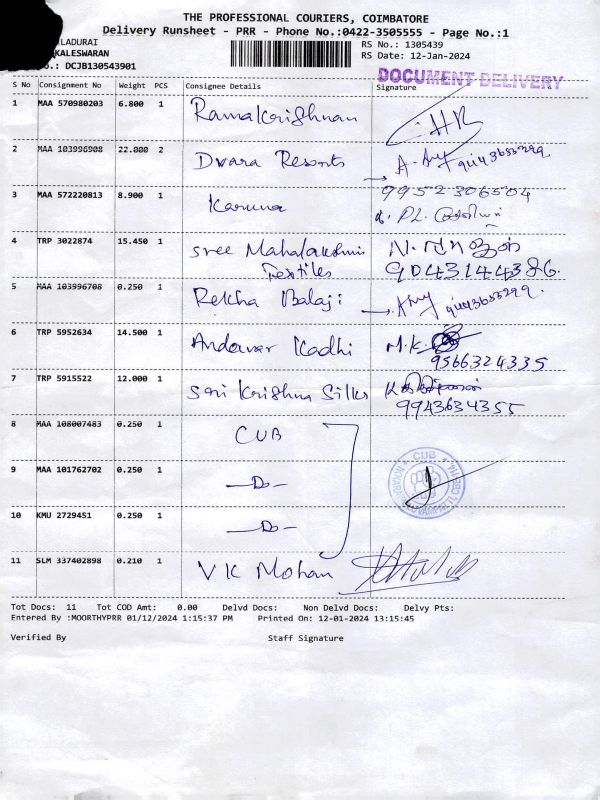 THE PROFESSIONAL COURIERS, COIMBATORE
Delivery Runsheet - PRR - Phone No.:0422-3505555 - Page No.:1
LADURAI
KALESWARAN
RS No.: 1305439
RS Date: 12-Jan-2024
o.: DCJB130543901
DOCUMENT DELIVERY
S No Consignment No Weight PCS Consignee Details Signature
1 MAA 570980203 6.800 1 Ramakrishnan
2 MAA 103996908 22.000 2 Dwara Resorts 9443653299
3 MAA 572220813 8.900 1 Karuna 9952306504
4 TRP 3022874 15.450 1 Sree Mahalakshmi
Textiles 9043144386
5 MAA 103996708 0.250 1 Rekha Balaji 9443653299
6 TRP 5952634 14.500 1 Andavar Kadhi M.K.
9566324335
7 TRP 5915522 12.000 1 Sri Krishna Silks
9943634355
8 MAA 108007483 0.250 1 CUB
CUB
9 MAA 101762702 0.250 1 —Do—
10 KMU 2729451 0.250 1 —Do—
11 SLM 337402898 0.210 1 VK Mohan
Tot Docs: 11 Tot COD Amt: 0.00 Delvd Docs: Non Delvd Docs: Delvy Pts:
Entered By :MOORTHYPRR 01/12/2024 1:15:37 PM Printed On: 12-01-2024 13:15:45
Verified By Staff Signature